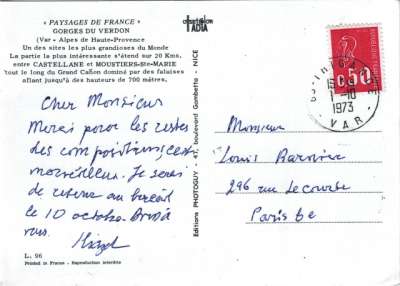 « PAYSAGES DE FRANCE »
GORGES DU VERDON
(Var - Alpes de Haute-Provence
Un des sites les plus grandioses du Monde
La partie la plus intéressante s'étend sur 20 Kms,
entre CASTELLANE et MOUSTIERS-Ste-MARIE
tout le long du Grand Cañon dominé par des falaises
allant jusqu'à des hauteurs de 700 mètres.
Cher Monsieur
Merci pour les restes
des compositions, c'est
merveilleux. Je serai
de retour au
le 10 octobre. 
vous.
L. 96
Printed in France - Reproduction interdite
ADIA
Editions PHOTOGUY - 41, boulevard Gambetta - NICE
REPUBLIQUE FRANCAISE
0,50
1-10
1973
VAR
Monsieur
Louis
296 rue Lecourbe
Paris